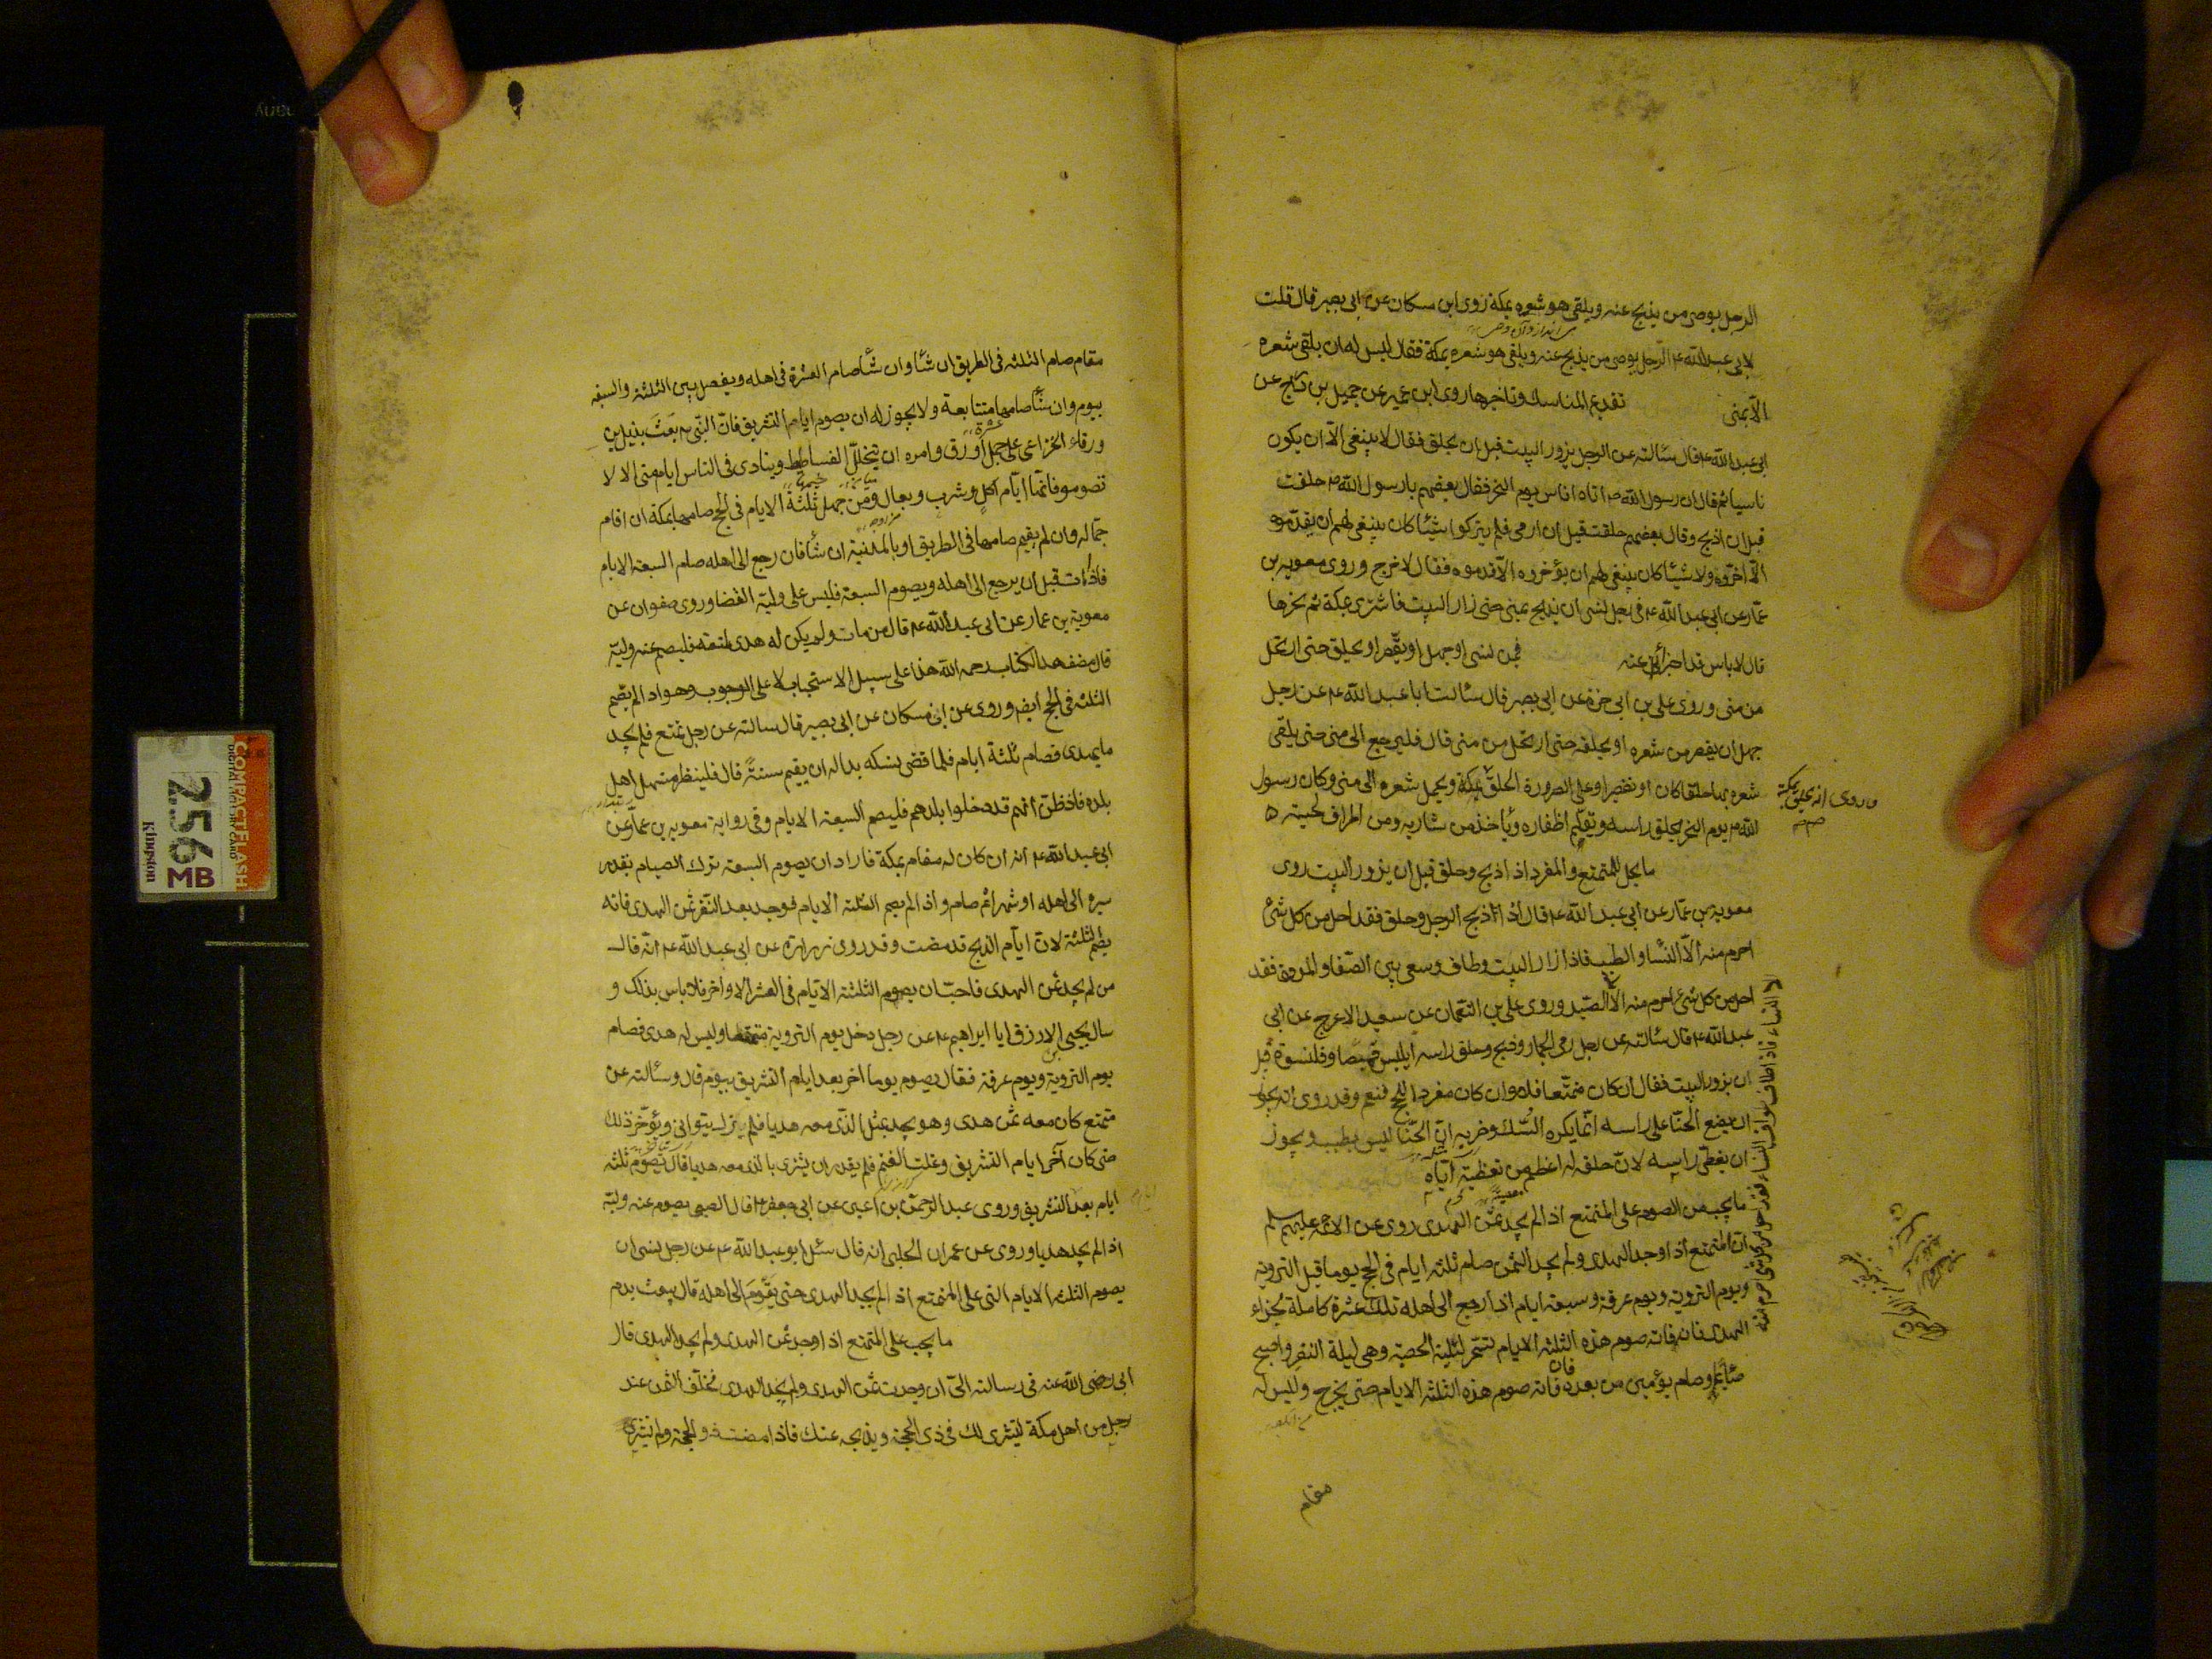 الرجل يوصى من يذبح عنه ويلقى هو شعره بمكة روى ابن مسكان عن ابى بصير قال قلت
لابى عبد الله ع الرجل يوصى من يذبح عنه ويلقى هو شعره بمكة فقال ليس له ان يلقى شعره
الا بمنى تقديم المناسك وتاخيرها روى ابن عمير عن جميل بن دراج عن
ابى عبد الله ع قال سألته عن الرجل يزور البيت قبل ان يحلق فقال لا ينبغى الا ان يكون
ناسيا ثم قال ان رسول الله ص اتاه اناس يوم النحر فقال بعضهم يا رسول الله ص حلقت
قبل ان اذبح وقال بعضهم حلقت قبل ان ارمى فلم يتركوا شيئا كان ينبغى لهم ان يقدموه
الا اخروه ولا شيئا كان ينبغى لهم ان يؤخروه الا قدموه فقال لا حرج وروى معوية بن
عمار عن ابى عبد الله ع فى رجل نسى ان يذبح بمنى حتى زار البيت فاشترى بمكة ثم نحرها
قال لا باس قد اجزأ عنه فيمن نسى او جهل او يقصر او يحلق حتى ارتحل
من منى وروى على بن ابى حمزة عن ابى بصير قال سألت ابا عبد الله ع عن رجل
جهل ان يقصر من شعره او يحلقه حتى ارتحل من منى قال فليرجع الى منى حتى يلقى
شعره بها حلقا كان او تقصيرا وعلى الصرورة الحلق بمكة ويحمل شعره الى منى وكان رسول
وروى انه يحلق بمكة
الله ص يوم النحر يحلق راسه ويقلم اظفاره ويأخذ من شاربه ومن اطراف لحيته
ما يحل للمتمتع والمفرد اذا ذبح وحلق قبل ان يزور البيت روى
معوية بن عمار عن ابى عبد الله ع قال اذا ذبح الرجل وحلق فقد احل من كل شئ
احرم منه الا النسا والطيب فاذا زار البيت وطاف وسعى بين الصفا والمروة فقد
احل من كل شئ احرم منه الا الصيد وروى على بن النعمان عن سعيد الاعرج عن ابى
الا النساء فاذا طاف طواف النساء فقد احل من كل شئ احرم منه
عبد الله ع قال سألته عن رجل رمى الجمار وذبح وحلق راسه ايلبس قميصا وقلنسوة قبل
ان يزور البيت فقال ان كان متمتعا فلا وان كان مفردا للحج فنعم وقد روى انه يجوز
ان يضع الحنا على راسه انما يكره السك وضربه ان الحنا ليس بطيب ويجوز
ان يغطى راسه لان حلقه له اعظم من تغطيته اياه
ما يجب من الصوم على المتمتع اذا لم يجد ثمن الهدى روى عن الائمة عليهم سلم
ان المتمتع اذا وجد الهدى ولم يجد الثمن صام ثلثة ايام فى الحج يوما قبل التروية
ويوم التروية ويوم عرفة وسبعة ايام اذا رجع الى اهله تلك عشرة كاملة لجزاء
الهدى فان فاته صوم هذه الثلثة الايام تسحر ليلة الحصبة وهى ليلة النفر واصبح
صائما وصام يومين من بعده فان فاته صوم هذه الثلثة الايام حتى يخرج وليس له
مقام
مقام صام الثلثة فى الطريق ان شأ وان شأ صام العشرة فى اهله ويفصل بين الثلثة والسبعة
بيوم وان شأ صامها متتابعة ولا يجوز له ان يصوم ايام التشريق فان النبى ص بعث بديل بن
ورقاء الخزاعى على جمل اورق وامره ان يتخلل الفساطيط وينادى فى الناس ايام منى الا لا
تصوموا فانها ايام اكل وشرب وبعال ومن جهل ثلثة الايام فى الحج صامها بمكة ان اقام
جماله وان لم يقم صامها فى الطريق او بالمدينة ان شأ فان رجع الى اهله صام السبعة الايام
فاذا مات قبل ان يرجع الى اهله ويصوم السبعة فليس على وليه القضا وروى صفوان عن
معوية بن عمار عن ابى عبد الله ع قال من مات ولم يكن له هدى لمتعه فليصم عنه وليه
قال مصنف هذا الكتاب رحمه الله هذا على سبيل الاستحباب لا على الوجوب وهو اذا لم يصم
الثلثة فى الحج ايضا وروى عن ابن مسكان عن ابى بصير قال سالته عن رجل تمتع فلم يجد
ما يهدى فصام ثلثة ايام فلما قضى نسكه بدا له ان يقيم سنة قال فلينظر منهل اهل
بلده فاذا ظن انهم قد دخلوا بلدهم فليصم السبعة الايام وفى رواية معوية بن عمار عن
ابى عبد الله ع انه ان كان له مقام بمكة فاراد ان يصوم السبعة ترك الصيام بقدر
سيره الى اهله او شهرا ثم صام واذا لم يصم الثلثة الايام فوجد بعد النفر ثمن الهدى فانه
يصم الثلثة لان ايام الذبح قد مضت وقد روى زرارة عن ابى عبد الله ع انه قال
من لم يجد ثمن الهدى فاحب ان يصوم الثلثة الايام فى العشر الاواخر فلا باس بذلك و
سال يحيى الازرق ابا ابراهيم ع عن رجل دخل يوم التروية متمتعا وليس له هدى فصام
يوم التروية ويوم عرفة فقال يصوم يوما اخر بعد ايام التشريق بيوم قال وسألته عن
متمتع كان معه ثمن هدى وهو يجد بمثل الذى معه هديا فلم يزل يتوانى ويؤخر ذلك
حتى كان آخر ايام التشريق وغلت الغنم فلم يقدر ان يشترى بالذى معه هديا قال يصوم ثلثة
ايام بعد التشريق وروى عبد الرحمن بن اعين عن ابى جعفر ع قال الصبى يصوم عنه وليه
اذا لم يجد هديا وروى عن عمران الحلبى انه قال سئل ابو عبد الله ع عن رجل نسى ان
يصوم الثلثة الايام التى على المتمتع اذا لم يجد الهدى حتى يقدم الى اهله قال يبعث بدم
ما يجب على المتمتع اذا وجد ثمن الهدى ولم يجد الهدى قال
ابى رضى الله عنه فى رسالته الى ان وجدت ثمن الهدى ولم يجد الهدى فخلف الثمن عند
رجل من اهل مكة ليشترى لك فى ذى الحجة ويذبحه عنك فاذا مضت ذو الحجة ولم يشتر
COMPACTFLASH
256
MB
Kingston